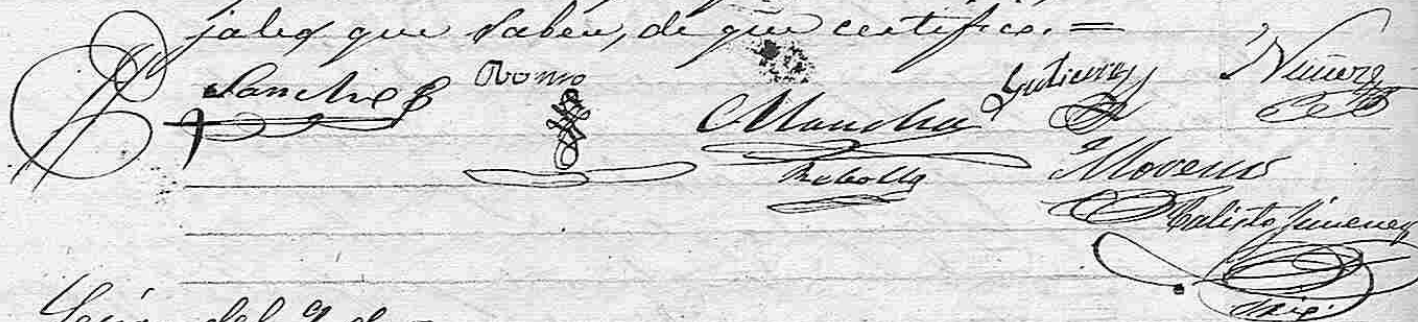 jales que saben, de que certifico. =
Sanchez Romo Mancha Gutierrez Nuñez
Rebollo Moreno
Calisto Jimenez
Srio.
Sesion del 9 de